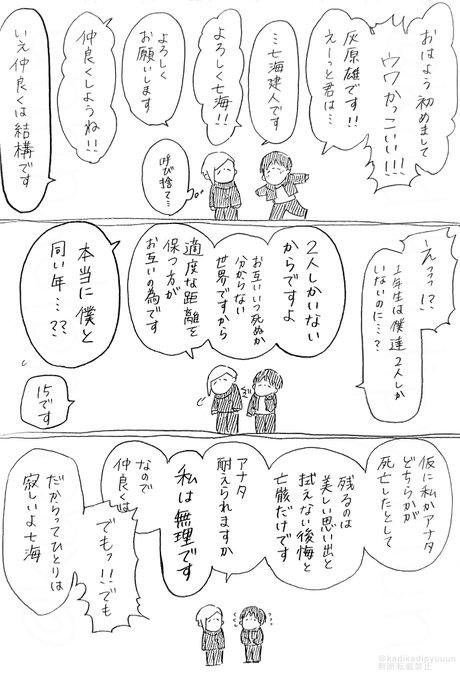 おはよう初めまして
ウワかっこいい!!!
灰原雄です!!
えーっと君は…
…七海建人です
よろしく七海!!
よろしく
お願いします
呼び捨て…
仲良くしようね!!
いえ仲良くは結構です
えっっっ!?
1年生は僕達2人しか
いないのに…?
2人しかいない
からですよ
お互いいつ死ぬか
分からない
世界ですから
適度な距離を
保つ方が
お互いの為です
本当に僕と
同い年…??
15です
仮に私かアナタ
どちらかが
死亡したとして
残るのは
美しい思い出と
拭えない後悔と
亡骸だけです
アナタ
耐えられますか
私は無理です
なので
仲良くは
でもっ!!でも
だからってひとりは
寂しいよ七海
@kadikadipyuuun
無断転載禁止